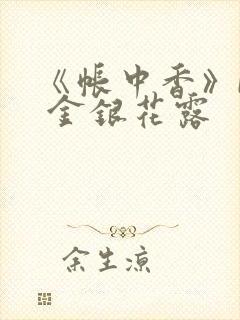 《帐中香》
金银花露
余生凉